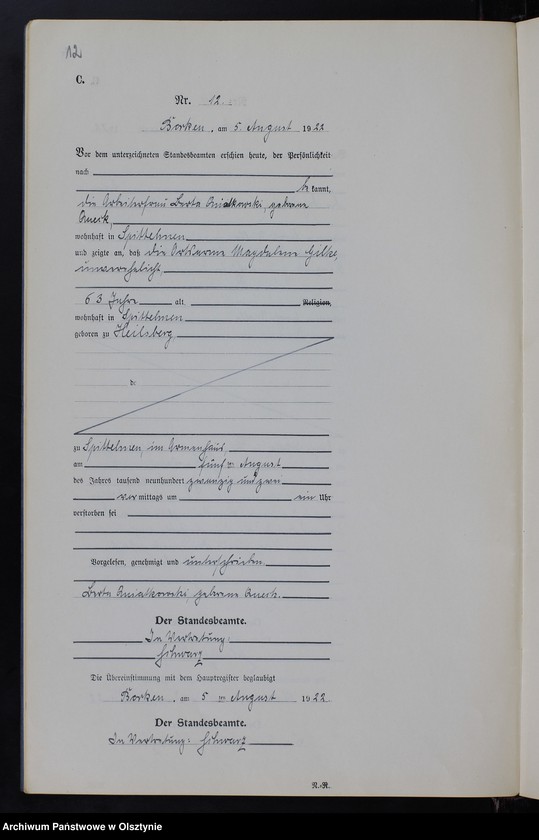 12
C.
Nr. 12.
Borken, am 5. August 1922
Vor dem unterzeichneten Standesbeamten erschien heute, der Persönlichkeit
nach
be kannt,
die Arbeiterfrau Berta Kniatkowski, geborene
Queck,
wohnhaft in Spittehnen
und zeigte an, daß die Ortsarme Magdalena Hilke,
unverehelicht,
63 Jahre alt, Religion,
wohnhaft in Spittehnen
geboren zu Heilsberg
de
zu Spittehnen, im Armenhaus,
am fünften August
des Jahres tausend neunhundert zwanzig und zwei
vor mittags um ein Uhr
verstorben sei
Vorgelesen, genehmigt und unterschrieben
Berta Kniatkowski geborene Queck.
Der Standesbeamte.
In Vertretung:
Schwarz
Die Übereinstimmung mit dem Hauptregister beglaubigt
Borken, am 5 ten August 1922
Der Standesbeamte.
In Vertretung: Schwarz
N.-R.
Archiwum Państwowe w Olsztynie